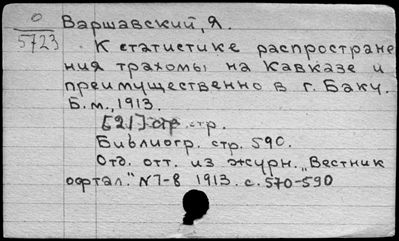 О
5723
Варшавский, Я.
К статистике распростране
ния трахомы на Кавказе и
преимущественно в г. Баку.
Б.м., 1913.
[21] стр.
Библиогр. стр. 590.
Отд. отт. из журн. „Вестник
офтал." N7-8 1913. с. 570-590